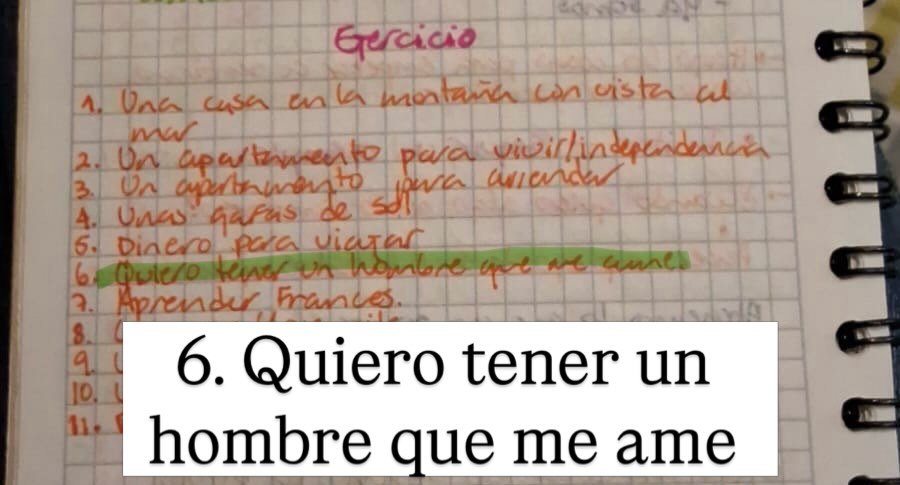 Ejercicio
1. Una casa en la montaña con vista al
mar
2. Un apartamento para vivir/independencia
3. Un apartamento para arrendar
4. Unas gafas de sol
5. Dinero para viajar
6. Quiero tener un hombre que me ame.
7. Aprender Frances.
8.
9.
10.
11.
6. Quiero tener un
hombre que me ame